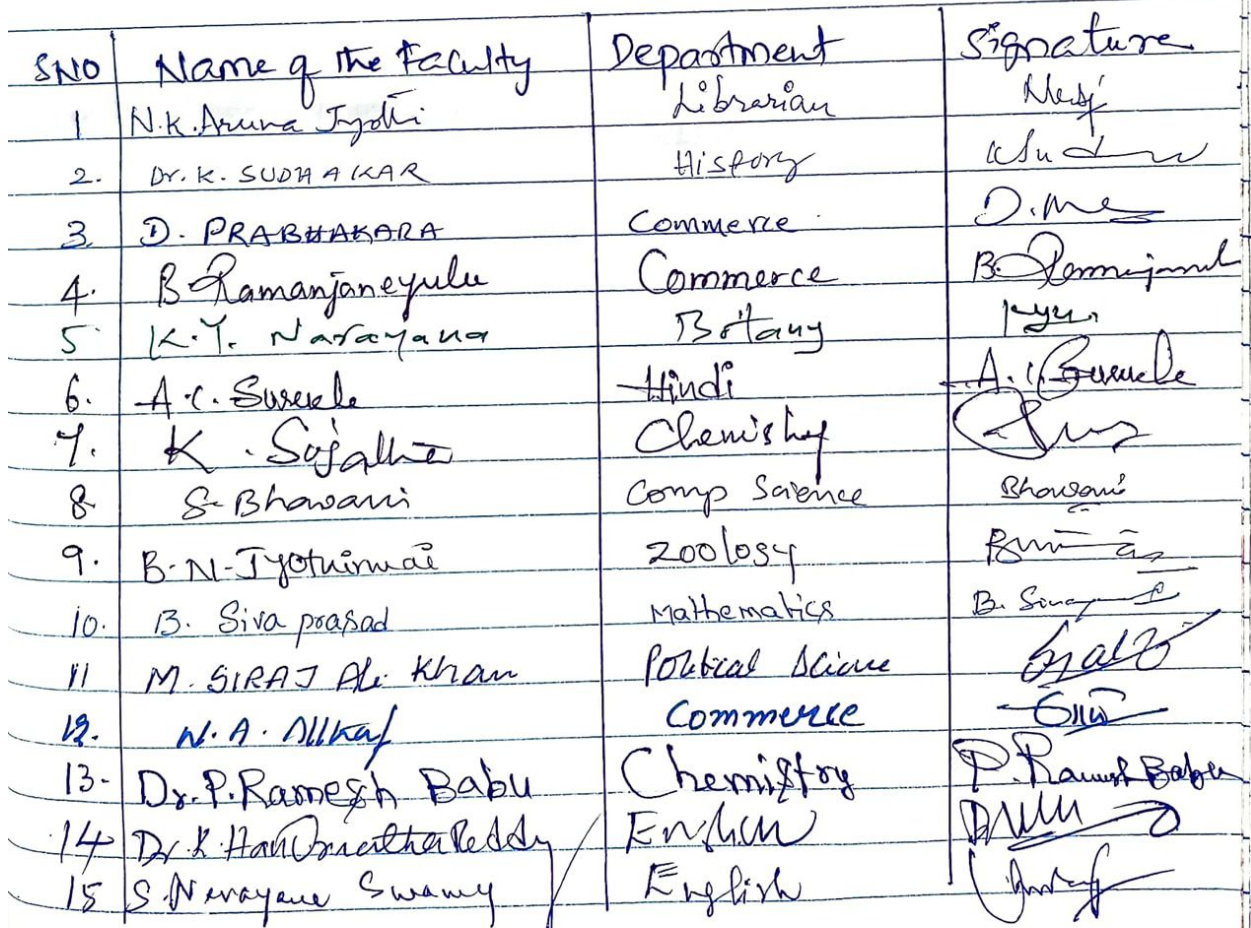 SNO Name of the Faculty Department Signature
1 N.K.Aruna Jyothi Librarian
2. Dr. K. SUDHAKAR History
3. D. PRABHAKARA Commerce
4. B Ramanjaneyulu Commerce B.
5 K.Y. Narayana Botany
6. A.C. Surekele Hindi A.C.
7. K. Sujatha Chemistry
8 S. Bhavani Comp Science Bhavani
9. B.N. Jyothirmai Zoology
10. B. Siva prasad Mathematics B.
11 M. SIRAJ Ali Khan Political Science
12. N.A. Commerce
13- Dr.P.Ramesh Babu Chemistry P.Ramesh Babu
14 Dr. K. Reddy English
15 S. Narayana Swamy English